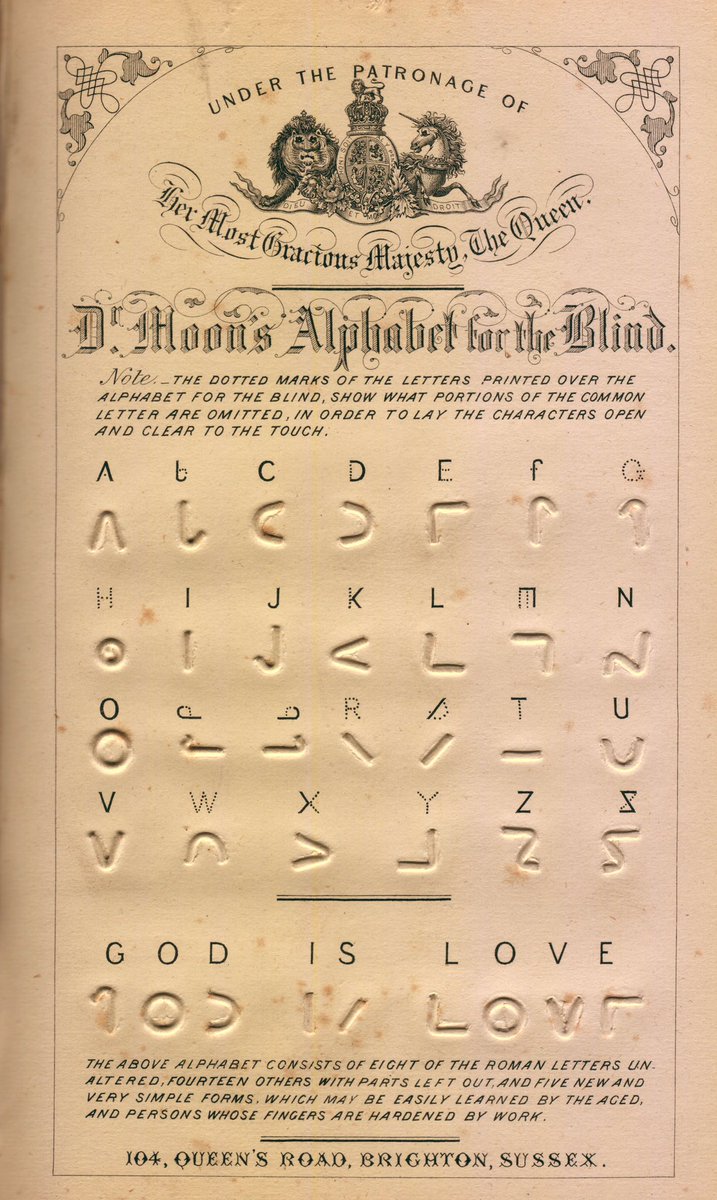 UNDER THE PATRONAGE OF
DIEU ET MON DROIT
Her Most Gracious Majesty, The Queen.
Dr. Moon's Alphabet for the Blind.
Note._THE DOTTED MARKS OF THE LETTERS PRINTED OVER THE
ALPHABET FOR THE BLIND, SHOW WHAT PORTIONS OF THE COMMON
LETTER ARE OMITTED, IN ORDER TO LAY THE CHARACTERS OPEN
AND CLEAR TO THE TOUCH.
A b C D E f G
H I J K L M N
O P Q R S T U
V W X Y Z &
GOD IS LOVE
THE ABOVE ALPHABET CONSISTS OF EIGHT OF THE ROMAN LETTERS UN-
ALTERED, FOURTEEN OTHERS WITH PARTS LEFT OUT, AND FIVE NEW AND
VERY SIMPLE FORMS. WHICH MAY BE EASILY LEARNED BY THE AGED,
AND PERSONS WHOSE FINGERS ARE HARDENED BY WORK.
104, QUEEN'S ROAD, BRIGHTON, SUSSEX.